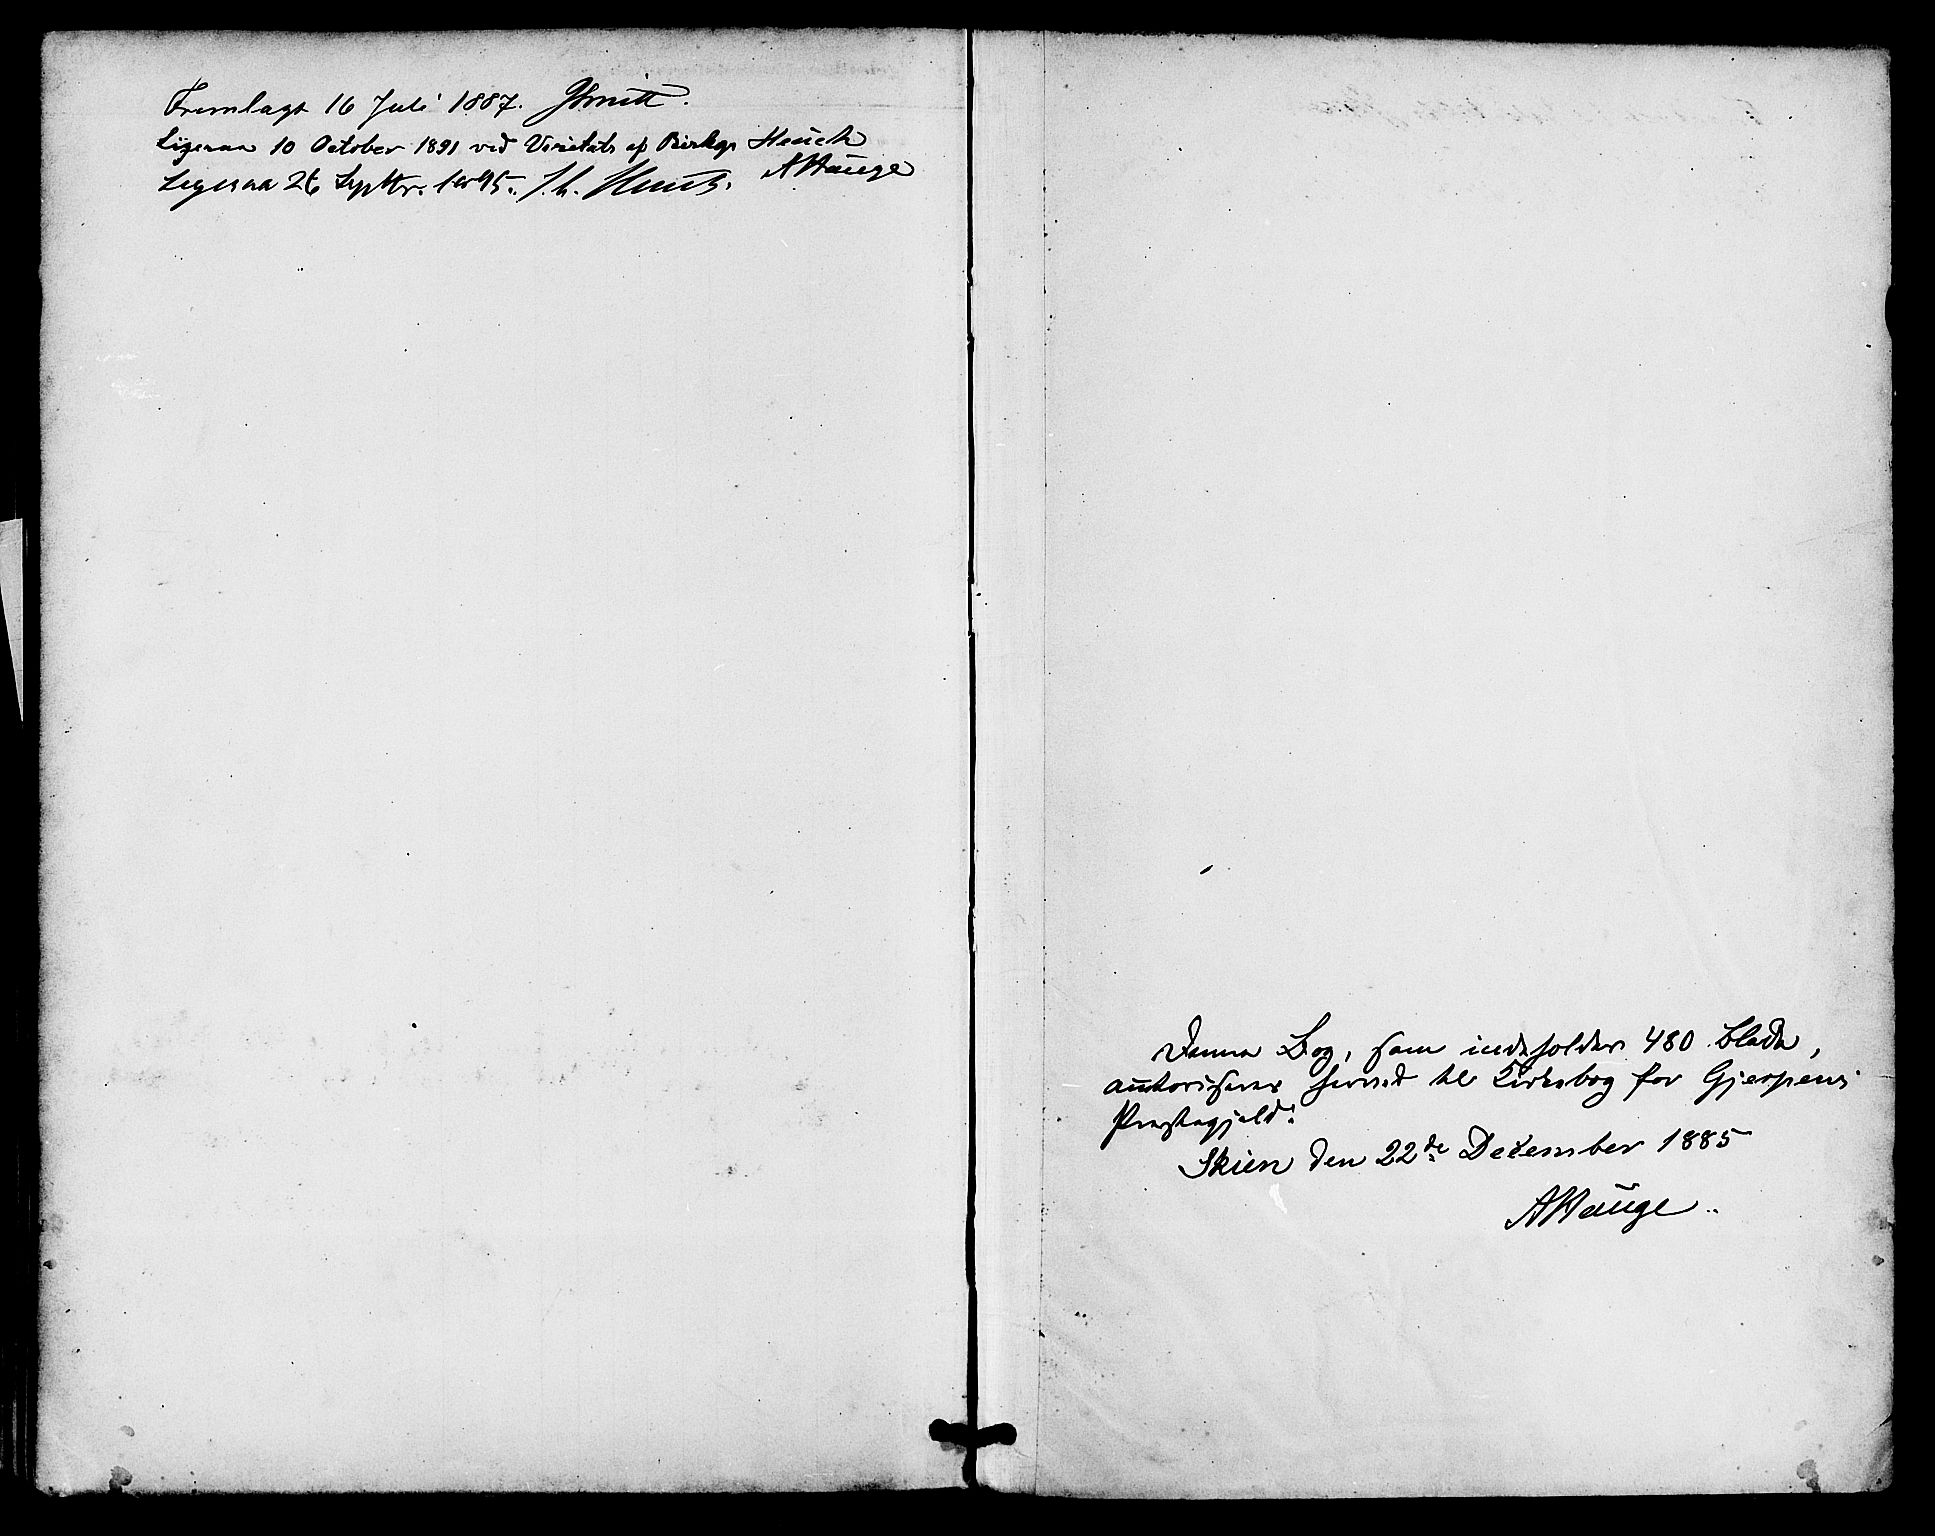 Fremlagt 16 Juli 1887. JSmitt.
Ligesaa 10 October 1891 ved Visitats af Biskop Heuch
AHauge
Ligesaa 26 Septbr. 1895. J. C. Heuch.
Denne Bog, som indeholder 480 Blade,
autoriseres herved til Kirkebog for Gjerpens
Præstegjeld.
Skien den 22de December 1885
AHauge